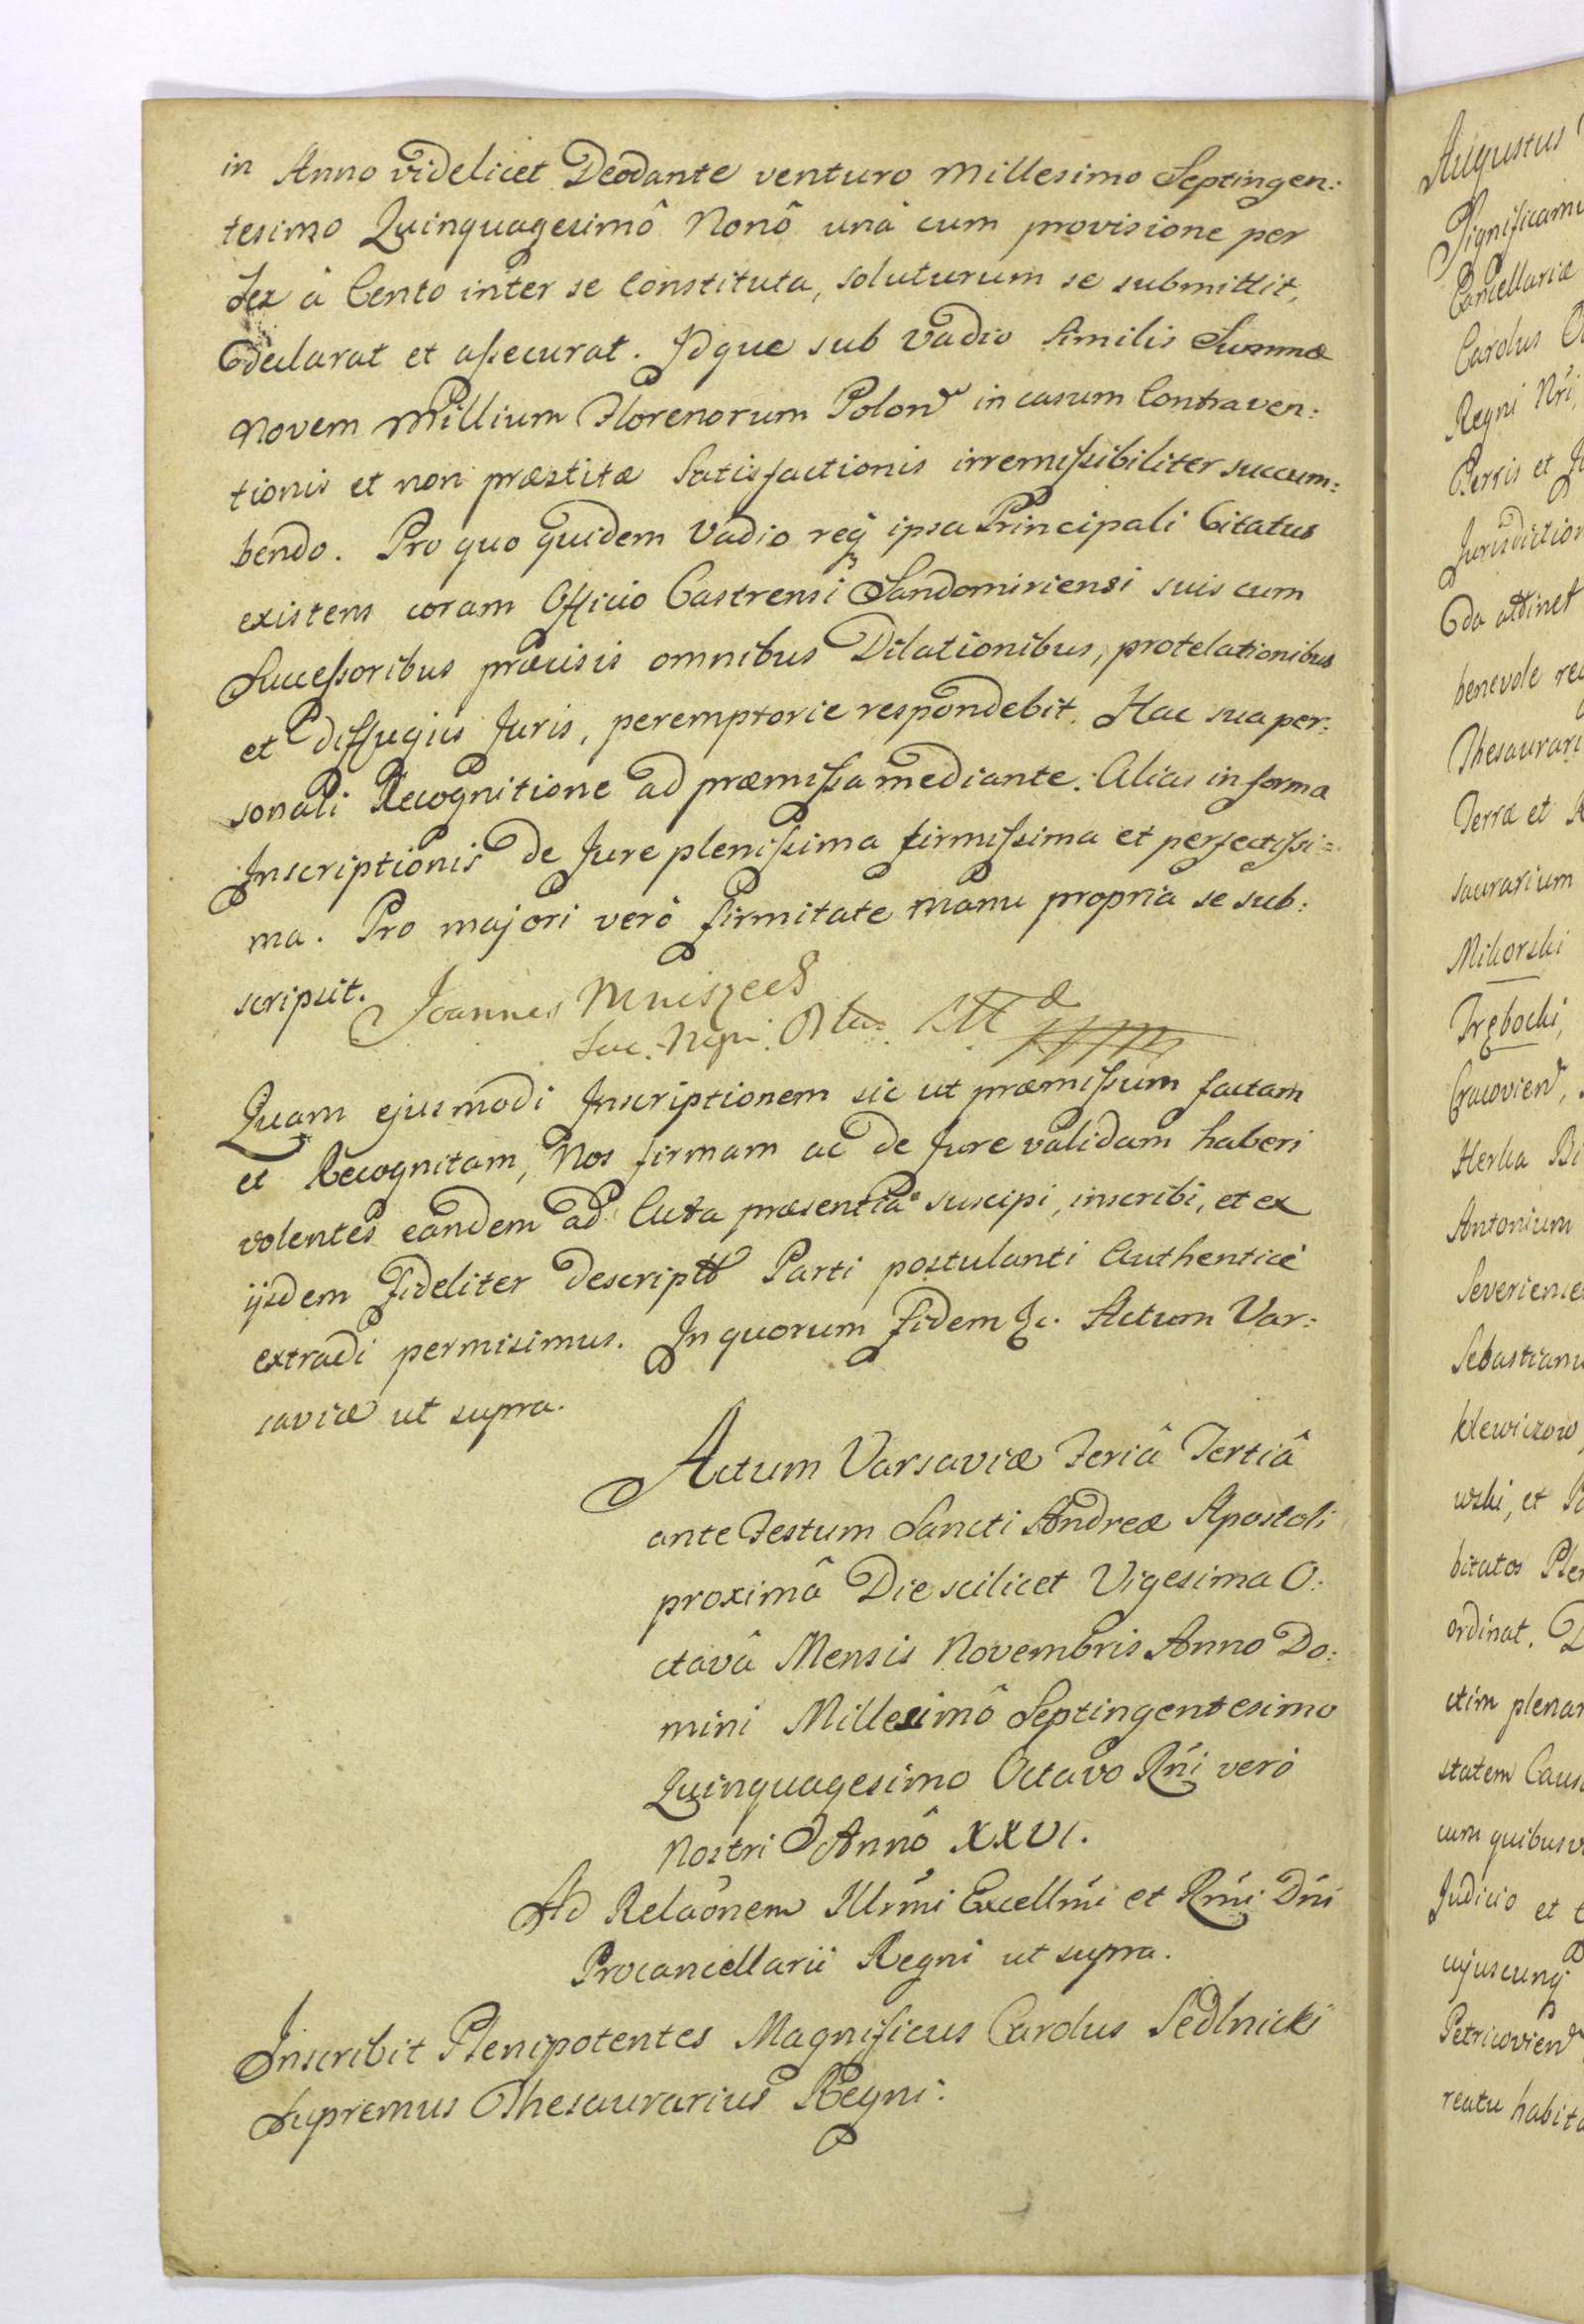 in Anno videlicet Deodante venturo Millesimo Septingen:
tesimo Quinquagesimô Nonô unà cum provisione per
Sex à Cento inter se Constituta, soluturum se submittit,
declarat et assecurat. Idque sub vadio similis Summæ
Novem Millium Florenorum Polon in casum Contraven:
tionis et non præstitæ Satisfactionis irremissibiliter succum:
bendo. Pro quo quidem Vadio req ipsa Principali Citatus
existens coram Officio Castrensi Sandomiriensi suis cum
Successoribus præcisis omnibus Dilationibus, protelationibus
et diffugiis Juris, peremptorie respondebit. Hac sua per:
sonali Recognitione ad præmissa mediante. Alias in forma
Inscriptionis de Jure plenissima firmissima et perfectissi=
ma. Pro majori verò firmitate manu propria se sub:
scripsit. Joannes Mniszech
Quam ejusmodi Inscriptionem sic ut præmissum factam
et Recognitam, Nos firmam ac de Jure validam haberi
volentes eandem ad Acta præsentia suscipi, inscribi, et ex
ijsdem Fideliter descriptã Parti postulanti Authenticè
extradi permisimus. In quorum Fidem &c. Actum Var:
saviæ ut supra.
Actum Varsaviæ Feriâ Tertiâ
ante Festum Sancti Andreæ Apostoli
proximâ Die scilicet Vigesima O:
ctavâ Mensis Novembris Anno Do:
mini Millesimô Septingentesimo
Quinquagesimo Octavo Rñi verò
Nostri Annô XXVI.
Ad Relaõnem Illrmi Excellmi et Rmi Dñi
Procancellarii Regni ut supra.
Inscribit Plenipotentes Magnificus Carolus Sedlnicki
Supremus Thesaurarius Regni.
Augustus
Significamu
Cancellariæ
Carolus
Regni Nri,
Terris et
Jurisdiction
ea attinet
benevole
Thesaurari
Terræ et
saurarium
Mikorski
Trębocki,
Cracovien,
Herka
Antonium
Severiense
Sebastianu
klewiczow
wski, et
bitatos
ordinat.
ctim plenar
statem Caus
cum quibusv
Judicio et
cujuscunq
Petricovien
reatu habita